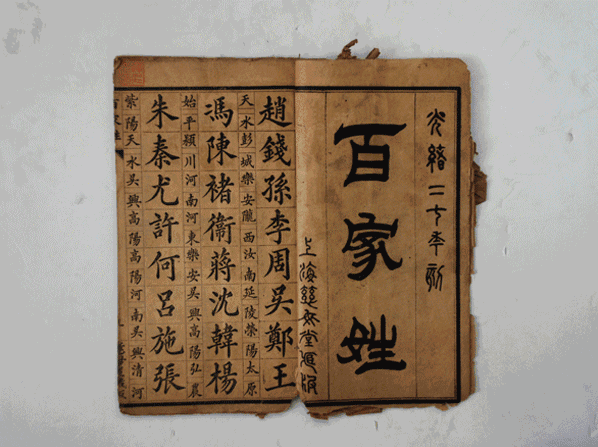 光緒二七年刻
百家姓
上海慈母堂
趙錢孫李周吳鄭王
天水彭城樂安隴西汝南延陵滎陽太原
馮陳褚衞蔣沈韓楊
始平潁川河南河東樂安吳興高陽弘農
朱秦尤許何呂施張
紫陽天水吳興高陽高陽河南吳興清河